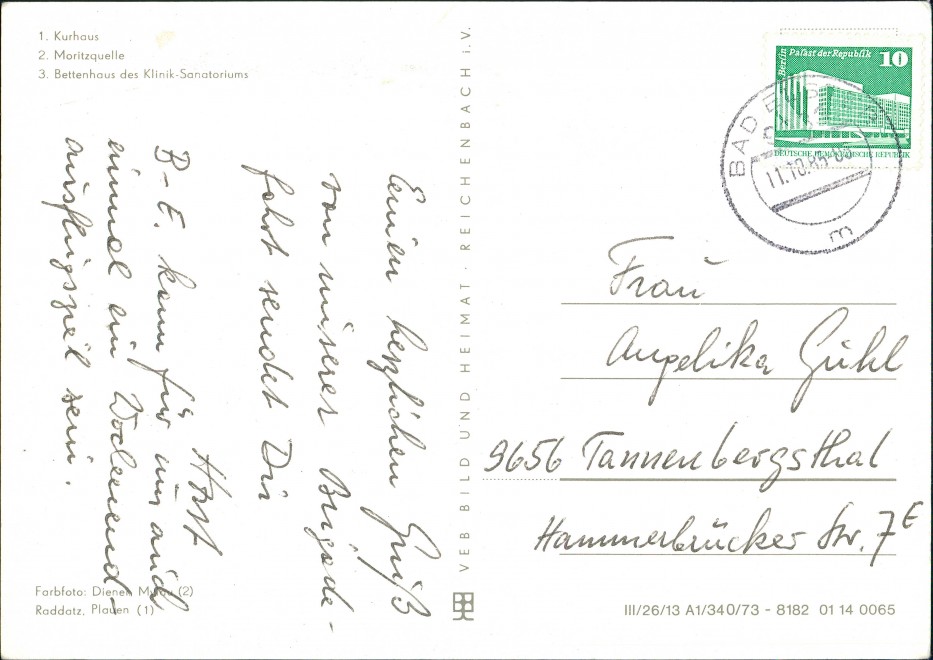 1. Kurhaus
2. Moritzquelle
3. Bettenhaus des Klinik-Sanatoriums
Einen herzlichen Gruß
von unserer Brigade-
fahrt sendet Dir
Horst
B-E. kann für uns auch
einmal ein Wochenend-
ausflugsziel sein.
Farbfoto: Diener, (2)
Raddatz, Plauen (1)
VEB BILD UND HEIMAT · REICHENBACH i.V.
Berlin Palast der Republik 10
DEUTSCHE DEMOKRATISCHE REPUBLIK
BAD
11.10.85-
m
Frau
Angelika Gühl
9656 Tannenbergsthal
Hammerbrücker Str. 7E
III/26/13 A1/340/73 - 8182 01 14 0065